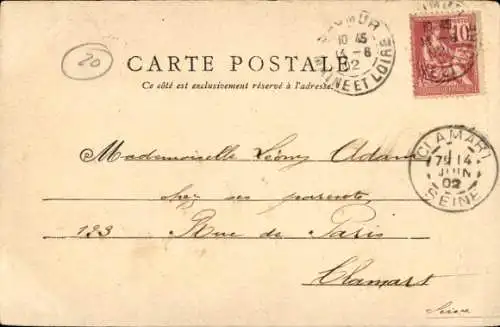 20
SAUMUR
10 45
14 - 6
02
MAINE ET LOIRE
10
CARTE POSTALE
Ce côté est exclusivement réservé à l'adresse.
Mademoiselle Léony Adam
chez ses parents,
123 Rue de Paris
Clamart
Seine
CLAMART
7 14
JUIN
02
SEINE